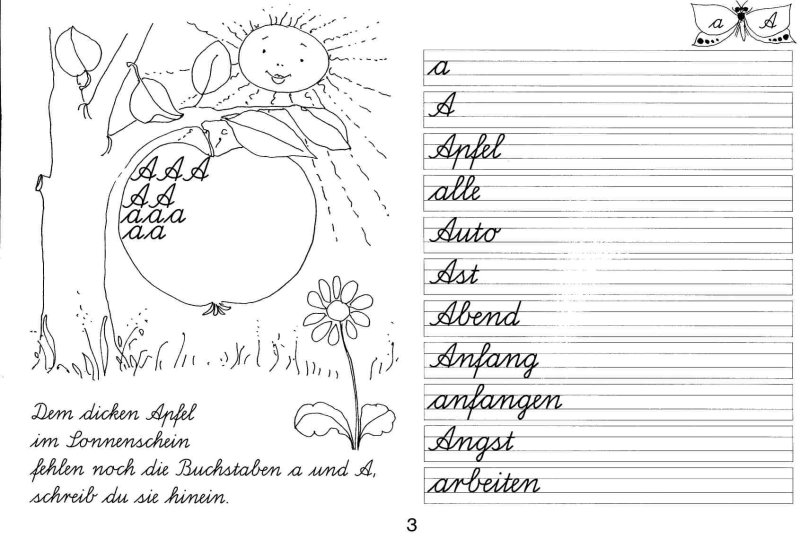 a A
A A A
A A
a a a
a a
Dem dicken Apfel
im Sonnenschein
fehlen noch die Buchstaben a und A,
schreib du sie hinein.
a
A
Apfel
alle
Auto
Ast
Abend
Anfang
anfangen
Angst
arbeiten
3